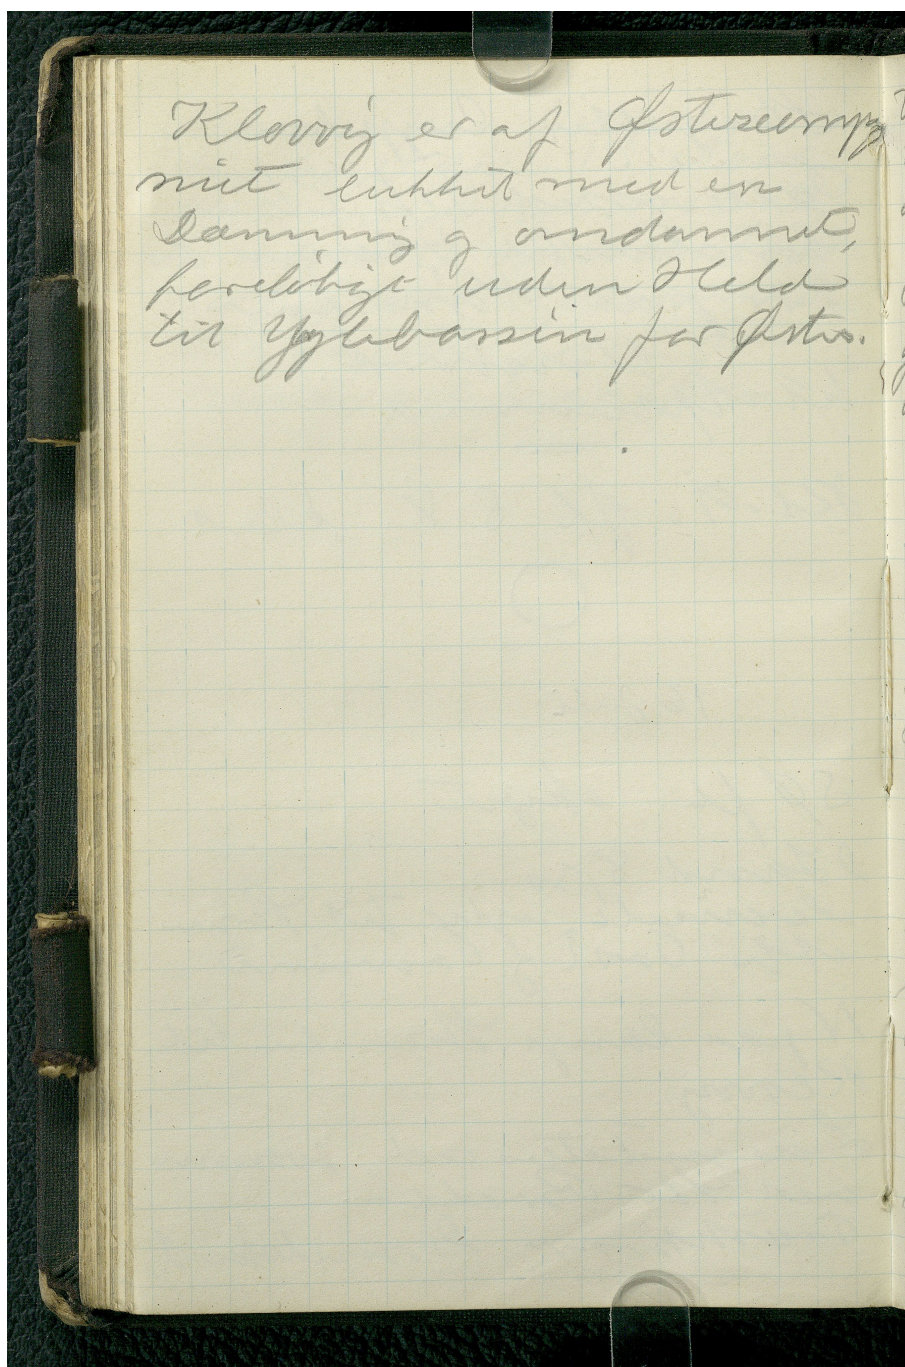 Klovvig er af Østerscompag
niet lukket med en
Dæmning og omdannet,
foreløbigt uden Held
til Yglebassin for Østers.